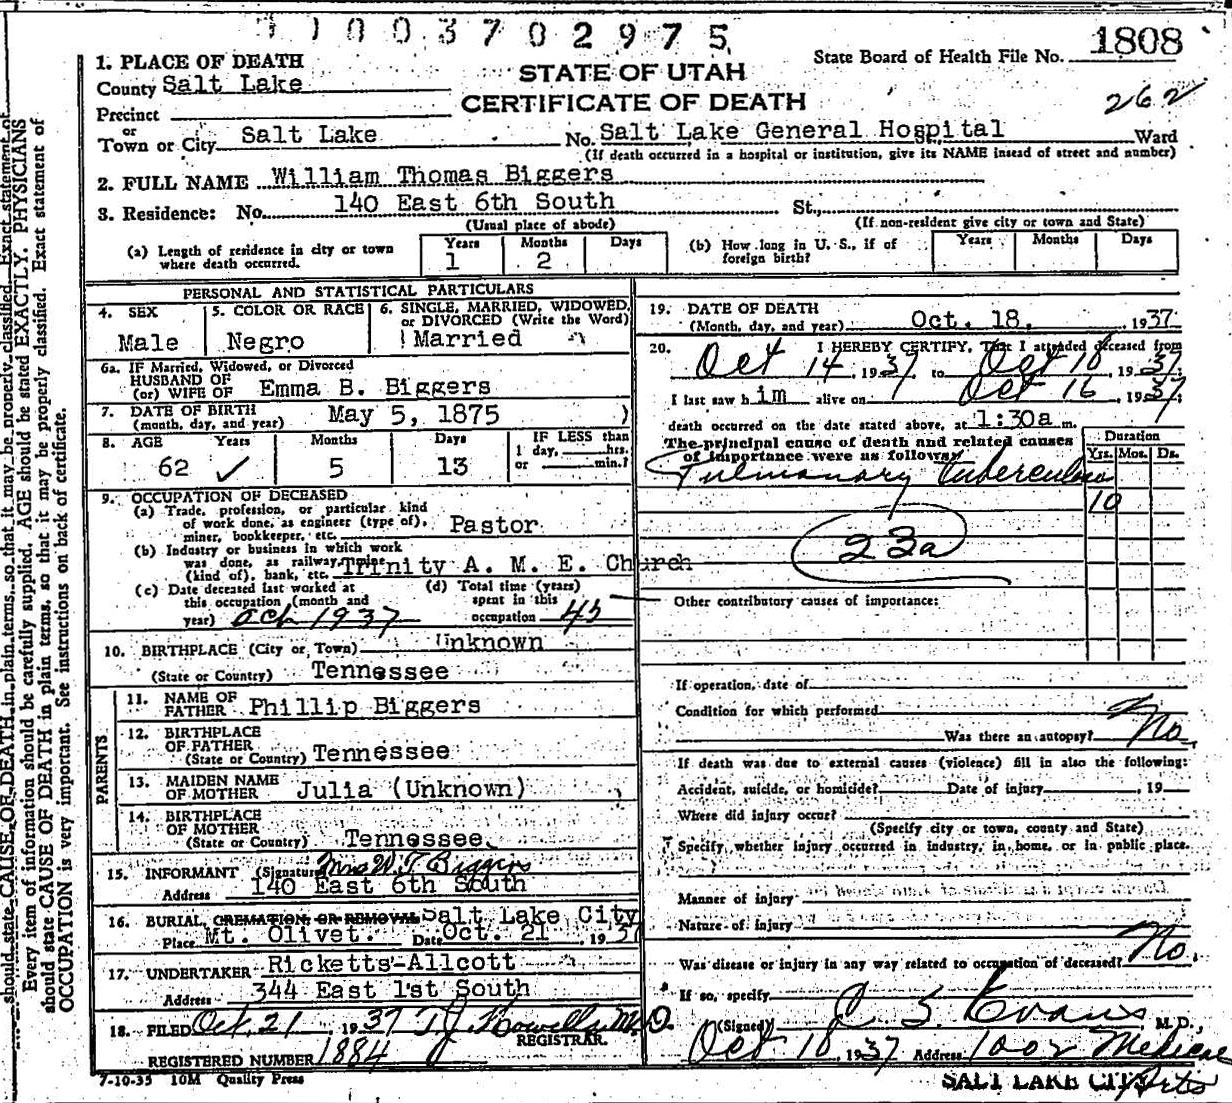 11003702975
1808
State Board of Health File No.
262
1. PLACE OF DEATH
County Salt Lake
STATE OF UTAH
CERTIFICATE OF DEATH
Precinct
or
Town or City Salt Lake No. Salt Lake General Hospital St., Ward
(If death occurred in a hospital or institution, give its NAME insead of street and number)
2. FULL NAME William Thomas Biggers
3. Residence: No. 140 East 6th South St.,
(Usual place of abode) (If non-resident give city or town and State)
(a) Length of residence in city or town where death occurred. Years 1 Months 2 Days
(b) How long in U. S., if of foreign birth? Years Months Days
PERSONAL AND STATISTICAL PARTICULARS
4. SEX Male
5. COLOR OR RACE Negro
6. SINGLE, MARRIED, WIDOWED, or DIVORCED (Write the Word) Married
6a. IF Married, Widowed, or Divorced
HUSBAND OF
(or) WIFE OF Emma B. Biggers
7. DATE OF BIRTH
(month, day, and year) May 5, 1875
8. AGE Years 62 ✓ Months 5 Days 13 IF LESS than 1 day, hrs. or min.?
9. OCCUPATION OF DECEASED
(a) Trade, profession, or particular kind
of work done, as engineer (type of),
miner, bookkeeper, etc. Pastor
(b) Industry or business in which work
was done, as railway, mine
(kind of), bank, etc. Trinity A. M. E. Church
(c) Date deceased last worked at
this occupation (month and
year) Oct 1937
(d) Total time (years)
spent in this
occupation 45
10. BIRTHPLACE (City or Town) Unknown
(State or Country) Tennessee
PARENTS
11. NAME OF
FATHER Phillip Biggers
12. BIRTHPLACE
OF FATHER
(State or Country) Tennessee
13. MAIDEN NAME
OF MOTHER Julia (Unknown)
14. BIRTHPLACE
OF MOTHER
(State or Country) Tennessee
15. INFORMANT (Signature) Mrs W. T. Biggers
Address 140 East 6th South
16. BURIAL, CREMATION OR REMOVAL Salt Lake City
Place Mt. Olivet. Date Oct. 21, 1937
17. UNDERTAKER Ricketts-Allcott
Address 344 East 1st South
18. FILED Oct. 21, 1937 T. J. Howells M.D.
REGISTRAR.
REGISTERED NUMBER 1884
7-10-35 10M Quality Press
19. DATE OF DEATH
(Month, day, and year) Oct. 18, 1937
20. I HEREBY CERTIFY, That I attended deceased from
Oct 14, 1937 to Oct 18, 1937
I last saw him alive on Oct 16, 1937
death occurred on the date stated above, at 1:30a m.
The principal cause of death and related causes
of importance were as follows:
Duration
Yrs. Mos. Ds.
Pulmonary tuberculosis
10
23a
Other contributory causes of importance:
If operation, date of
Condition for which performed
Was there an autopsy? No
If death was due to external causes (violence) fill in also the following:
Accident, suicide, or homicide? Date of injury , 19
Where did injury occur?
(Specify city or town, county and State)
Specify whether injury occurred in industry, in home, or in public place.
Manner of injury
Nature of injury
Was disease or injury in any way related to occupation of deceased? No.
If so, specify
(Signed) C S. Evans M. D.,
Oct 18 1937 Address 1002 Medical Arts
SALT LAKE CITY
should state CAUSE OF DEATH in plain terms, so that it may be properly classified. Exact statement of
Every item of information should be carefully supplied. AGE should be stated EXACTLY. PHYSICIANS
should state CAUSE OF DEATH in plain terms, so that it may be properly classified. Exact statement of
OCCUPATION is very important. See instructions on back of certificate.